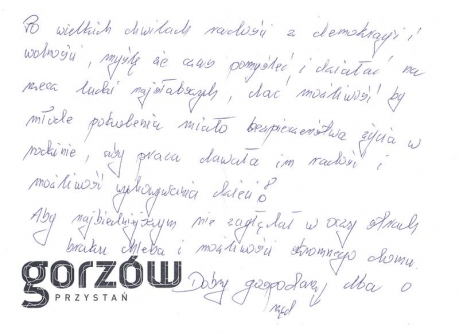 Po wielkich chwilach radości z demokracji i
wolności, myślę że czas pomyśleć i działać na
rzecz ludzi najsłabszych, dać możliwość by
młode pokolenia miało bezpieczeństwo życia w
rodzinie, aby praca dawała im radość i
możliwość wychowywania dzieci
Aby najbiedniejszym nie zaglądał w oczy strach
braku chleba i możliwości skromnego domu.
Dobry gospodarz dba o
gorzów
PRZYSTAŃ